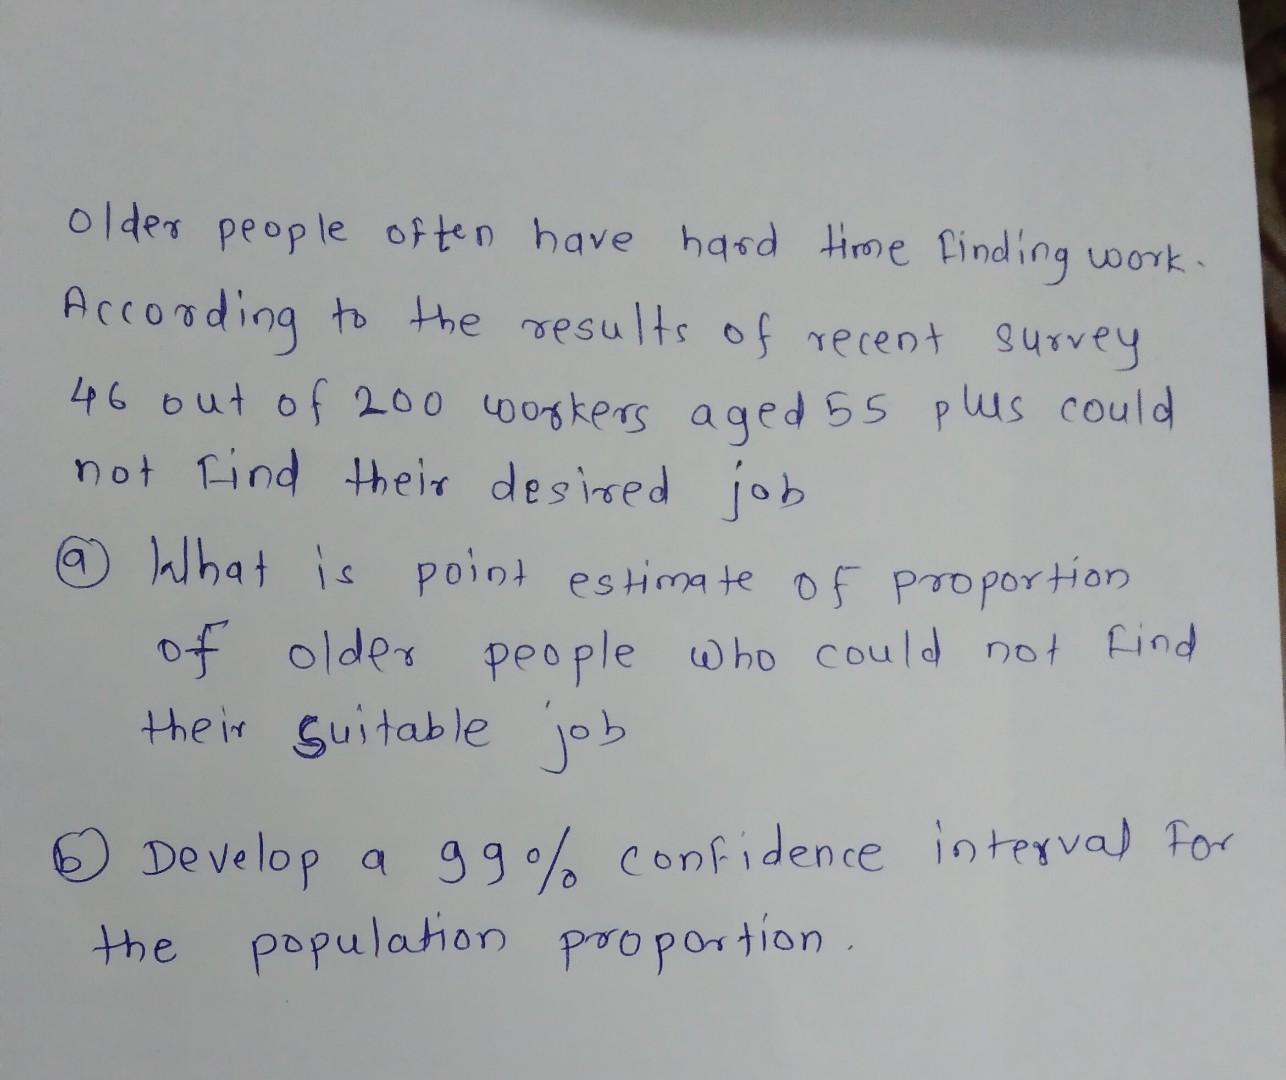 older people often have hard time finding work.
According to the results of recent survey
46 out of 200 workers aged 55 plus could
not find their desired job
ⓐ What is point estimate of proportion
of older people who could not find
their suitable job
ⓑ Develop a 99% confidence interval for
the population proportion.